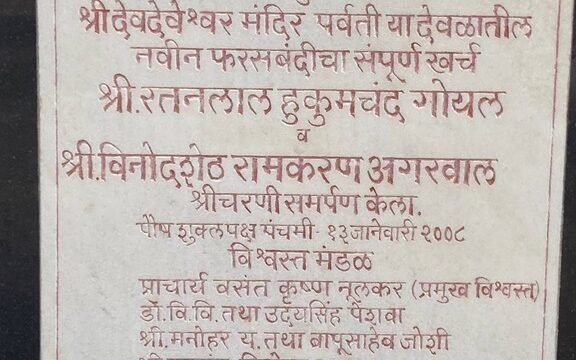 श्रीदेवदेवेश्वर मंदिर पर्वती या देवळातील
नवीन फरसबंदीचा संपूर्ण खर्च
श्री.रतनलाल हुकुमचंद गोयल
व
श्री.विनोदशेठ रामकरण अगरवाल
श्रीचरणी समर्पण केला.
पौष शुक्लपक्ष पंचमी - १३ जानेवारी २००८
विश्वस्त मंडळ
प्राचार्य वसंत कृष्ण नूलकर (प्रमुख विश्वस्त)
डॉ.वि.वि.तथा उदयसिंह पेशवा
श्री.मनोहर य.तथा बापूसाहेब जोशी